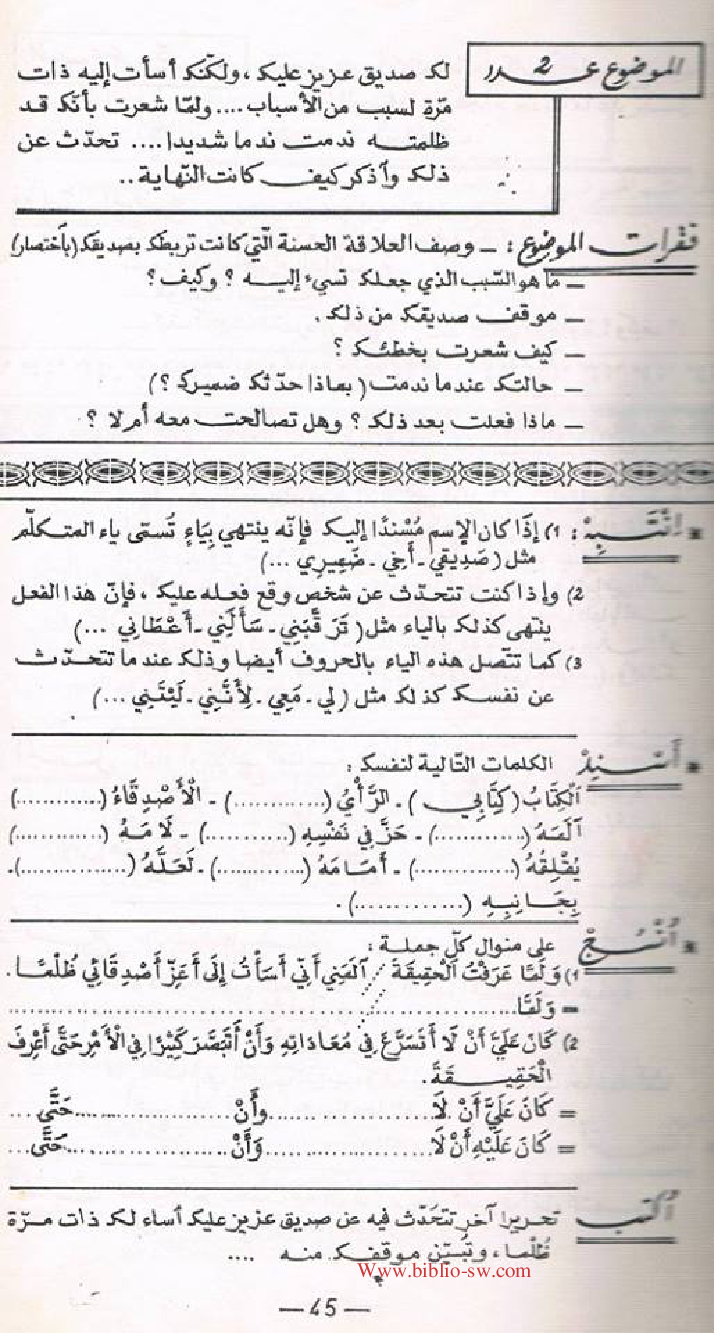 الموضوع عدد 2
لك صديق عزيز عليك، ولكنّك أسأت إليه ذات
مرّة لسبب من الأسباب .... ولمّا شعرت بأنّك قد
ظلمته ندمت ندما شديدا .... تحدّث عن
ذلك وأذكر كيف كانت النّهاية ..
فقرات الموضوع : ـ وصف العلاقة الحسنة الّتي كانت تربطك بصديقك (بأختصار)
ـ ما هو السّبب الذي جعلك تسيء إليه ؟ وكيف ؟
ـ موقف صديقك من ذلك.
ـ كيف شعرت بخطئك ؟
ـ حالتك عندما ندمت ( بماذا حدّثك ضميرك ؟)
ـ ماذا فعلت بعد ذلك ؟ وهل تصالحت معه أم لا ؟
* اِنْتَبِهْ : 1) إذَا كان الإسم مُسْندًا إليك فإنّه ينتهي بِيَاءٍ تُسمّى ياء المتكلّم
مثل ( صَدِيقي ـ أَخِي ـ ضَمِيرِي ...)
2) وإذا كنت تتحدّث عن شخص وقع فعله عليك، فإنّ هذا الفعل
ينتهي كذلك بالياء مثل ( تَرَقَّبَنِي ـ سَأَلَنِي ـ أَعْطَانِي ...)
3) كما تتّصل هذه الياء بالحروف أيضا وذلك عندما تتحدّث
عن نفسك كذلك مثل ( لِي ـ مَعِي ـ لِأَنَّنِي ـ لَيْتَنِي ...)
* أَسْنِدْ الكلمات التّالية لنفسك :
اَلْكِتَابُ ( كِتَابِي ) ـ الرَّأْيُ (............) ـ الْأَصْدِقَاءُ (............)
آلَمَهُ (............) ـ حَزَّ فِي نَفْسِهِ (...........) ـ لَامَهُ (............)
يُقْلِقُهُ (.............) ـ أَمَامَهُ (............) ـ لَعَلَّهُ (..............)ـ
بِجَانِبِهِ (..............) .
* اُنْسُجْ على منوال كلّ جملة :
1) وَلَمَّا عَرَفْتُ الْحَقِيقَةَ // آلَمَنِي أَنِّي أَسَأْتُ إِلَى أَعَزِّ أَصْدِقَائِي ظُلْمًا.
= وَلَمَّا ..................................................
2) كَانَ عَلَيَّ أَنْ لَا أَتَسَرَّعَ فِي مُعَادَاتِهِ وَأَنْ أَتَبَصَّرَ كَثِيرًا فِي الْأَمْرِ حَتَّى أَعْرِفَ
الْحَقِيقَةَ.
= كَانَ عَلَيَّ أَنْ لَا ........................ وأَنْ .................. حَتَّى ...
= كَانَ عَلَيْهِ أَنْ لَا ........................ وَأَنْ .................. حَتَّى ...
أُكتب تحريرا آخر تتحَدّث فيه عن صديق عزيز عليك أساء لك ذات مرّة
ظُلما، وتُبيّن موقفك منه ....
Www.biblio-sw.com
— 45 —